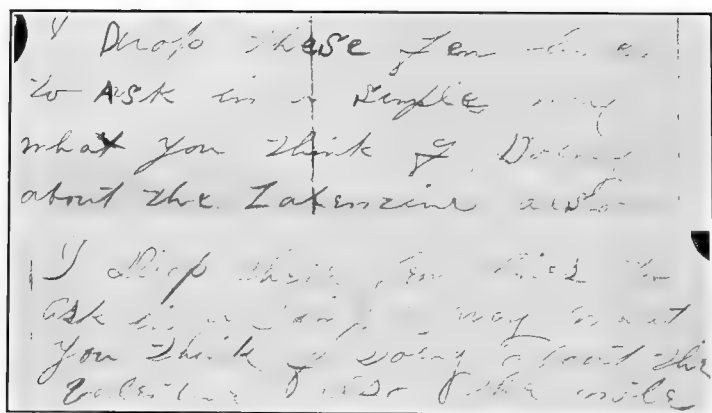 I Drop these few
to ASK in a simple way
what you think of Doing
about the Zalenzine also
I Drop these few lines to
ask in a simple way what
you think of doing about the
Valentine